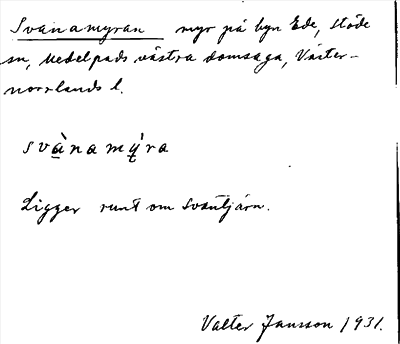 Svanamyran myr på byn Ede, Stöde
sn, Medelpads västra domsaga, Väster-
norrlands l.
svà̱namý̱ra
Ligger runt om Svantjärn.
Valter Jansson 1931.